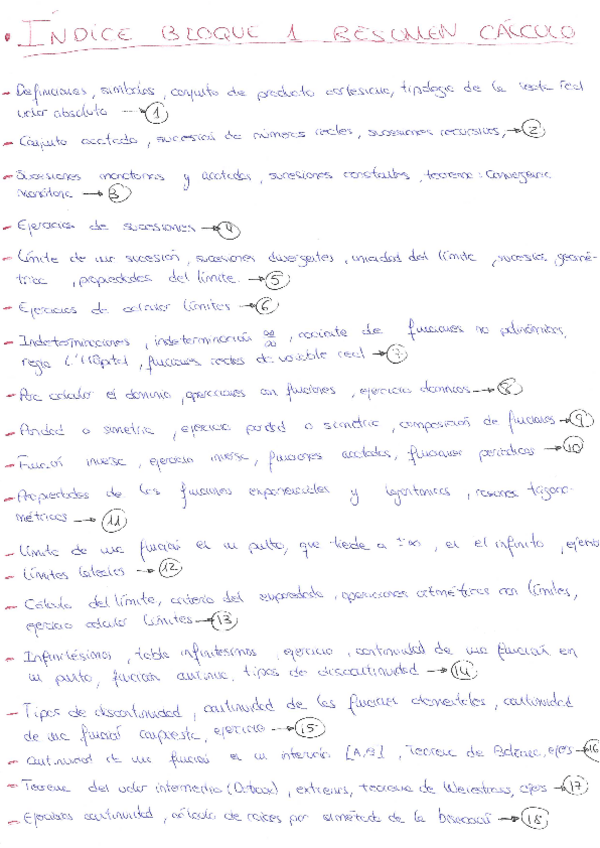 • ÍNDICE BLOQUE 1 RESUMEN CÁLCULO
- Definiciones, símbolos, conjunto de producto cartesiano, tipología de la recta real
valor absoluto → 1
- Conjunto acotado, sucesión de números reales, sucesiones recursivas, → 2
- Sucesiones monótonas y acotadas, sucesiones constantes, teorema: Convergencia
monótona → 3
- Ejercicios de sucesiones → 4
- Límite de una sucesión, sucesiones divergentes, unicidad del límite, sucesión geomé-
trica, propiedades del límite. → 5
- Ejercicios de calcular límites → 6
- Indeterminaciones, indeterminación ∞/∞, cociente de funciones no polinómicas,
regla L'Hôpital, funciones reales de variable real → 7
- calcular el dominio, operaciones con funciones, ejercicios dominios → 8
- Paridad o simetría, ejercicio paridad o simetría, composición de funciones → 9
- Función inversa, ejercicio inversa, funciones acotadas, funciones periódicas → 10
- Propiedades de las funciones exponenciales y logarítmicas, razones trigono-
métricas → 11
- Límite de una función en un punto, que tiende a ±∞, en el infinito,
- Límites laterales → 12
- Cálculo del límite, criterio del emparedado, operaciones aritméticas con límites,
ejercicio calcular límites → 13
- Infinitésimos, tabla infinitésimos, ejercicio, continuidad de una función en
un punto, función continua, tipos de discontinuidad → 14
- Tipos de discontinuidad, continuidad de las funciones elementales, continuidad
de una función compuesta, ejercicio → 15
- Continuidad de una función en un intervalo [A,B], Teorema de Bolzano, ejers → 16
- Teorema del valor intermedio (Darboux), extremos, teorema de Weierstrass, ejers → 17
- Ejercicios continuidad, cálculo de raíces por el método de la bisección → 18